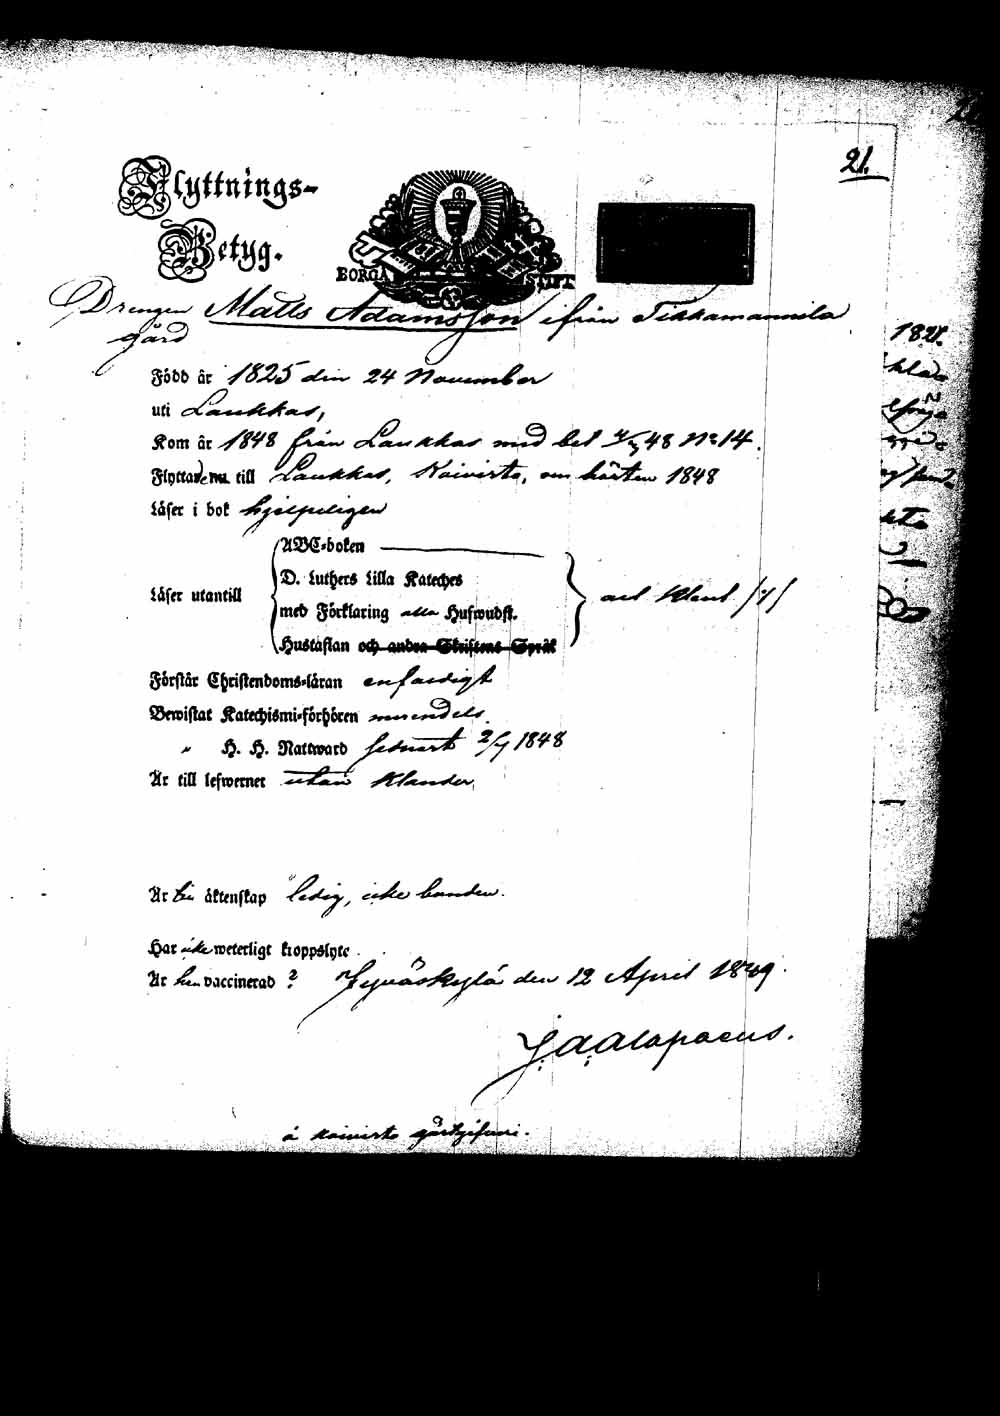 21.
Flyttnings-
Betyg.
BORGÅ STIFT
Drengen Matts Adamsson ifrån Tikkamannila
gård
Född år 1825 den 24 November
uti Laukkas,
Kom år 1848 från Laukkas med bet 48 No 14.
Flyttade nu till Laukkas, Koivisto, om hösten 1848
Läser i bok hjelpeligen
ABC-boken
D. Luthers Lilla Kateches
Läser utantill
med Förklaring alla Hufwudst.
Hustaflan och andra Skriftens Språk
Förstår Christendoms-läran enfaldigt
Bewistat Katechismi-förhören merendels
" H. H. Nattward sednast 2/7 1848
Är till lefwernet utan klander,
Är till äktenskap ledig, icke bunden.
Har icke weterligt kroppslyte.
Är han vaccinerad? Jyväskylä den 12 April 1849.
J. A. Alopaeus.
à Koivisto gästgifveri.
1821.